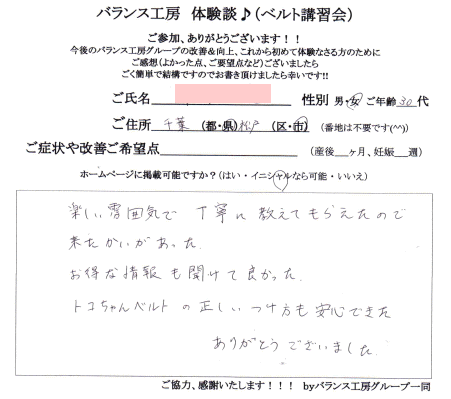 バランス工房 体験談♪(ベルト講習会)
ご参加、ありがとうございます！！
今後のバランス工房グループの改善＆向上、これから初めて体験なさる方のために
ご感想(よかった点、ご要望点など)ございましたら
ごく簡単で結構ですのでお書き頂けましたら幸いです!!
ご氏名 性別 男・女 ご年齢 30 代
ご住所 千葉 (都・県) 松戸 (区・市) (番地は不要です(^^))
ご症状や改善ご希望点 (産後 ヶ月、妊娠 週)
ホームページに掲載可能ですか？(はい・イニシャルなら可能・いいえ)
楽しい雰囲気で 丁寧に教えてもらえたので
来たかいがあった.
お得な情報も聞けて良かった.
トコちゃんベルトの正しいつけ方も安心できた
ありがとうございました.
ご協力、感謝いたします！！！ byバランス工房グループ一同